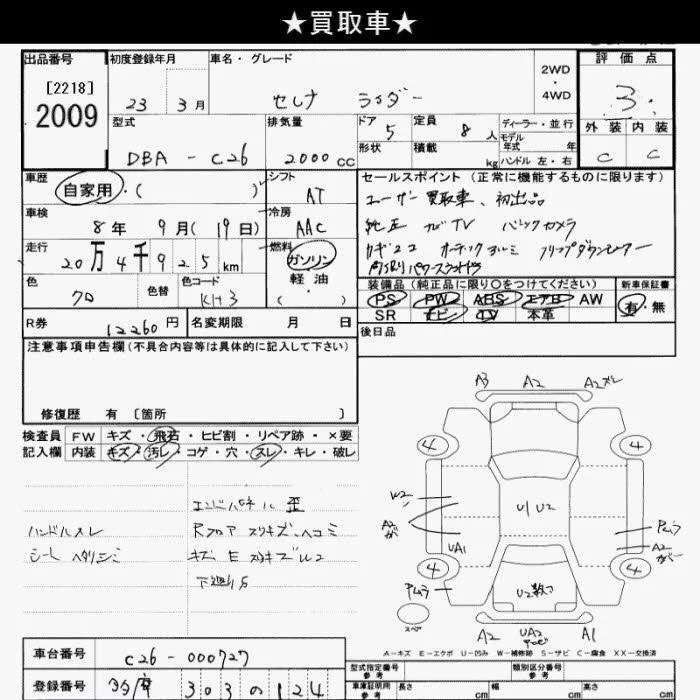 ★買取車★
出品番号 初度登録年月 車名・グレード 2WD・4WD 評価点
[2218]
2009
23 3月 セレナ ライダー 3.
型式 排気量 ドア 5 定員 8人 ディーラー・並行
モデル年式 年
外装 内装
DBA - C26 2000cc 形状 積載 kg ハンドル 左・右 C C
車歴 自家用・( ) シフト AT
セールスポイント (正常に機能するものに限ります)
ユーザー買取車、初出品
車検 8年 9月(19日) 冷房 AAC
純正 ナビTV バックカメラ
走行 20万4千925km 燃料 ガソリン・軽油( )
カギ2コ
フリップダウンモニター
色 クロ 色替 色コード KH3
装備品 (純正品に限り○をつけてください) 新車保証書
PS PW ABS エアB AW 有・無
SR ナビ TV 本革
R券 12260円 名変期限 月 日
後日品
注意事項申告欄(不具合内容等は具体的に記入して下さい)
修復歴 有 [箇所 ]
検査員 FW キズ・飛石・ヒビ割・リペア跡・×要
記入欄 内装 キズ・汚レ・コゲ・穴・スレ・キレ・破レ
エンドパネル歪
ハンドルスレ Rフロア スリキズ・ヘコミ
シート ヘタリ
下廻りS
A3 A2 A2
4 4
W2
U1 U2
A2
UA1
A2
4 4
スペア
A2 UA2 A1
A-キズ E-エクボ U-凹み W-補修跡 S-サビ C-腐食 XX-交換済
車台番号 C26-000727
型式指定番号 類別区分番号
参考 参考
登録番号 303 の 124
車庫証明用 参考 長さ cm 幅 cm 高さ cm